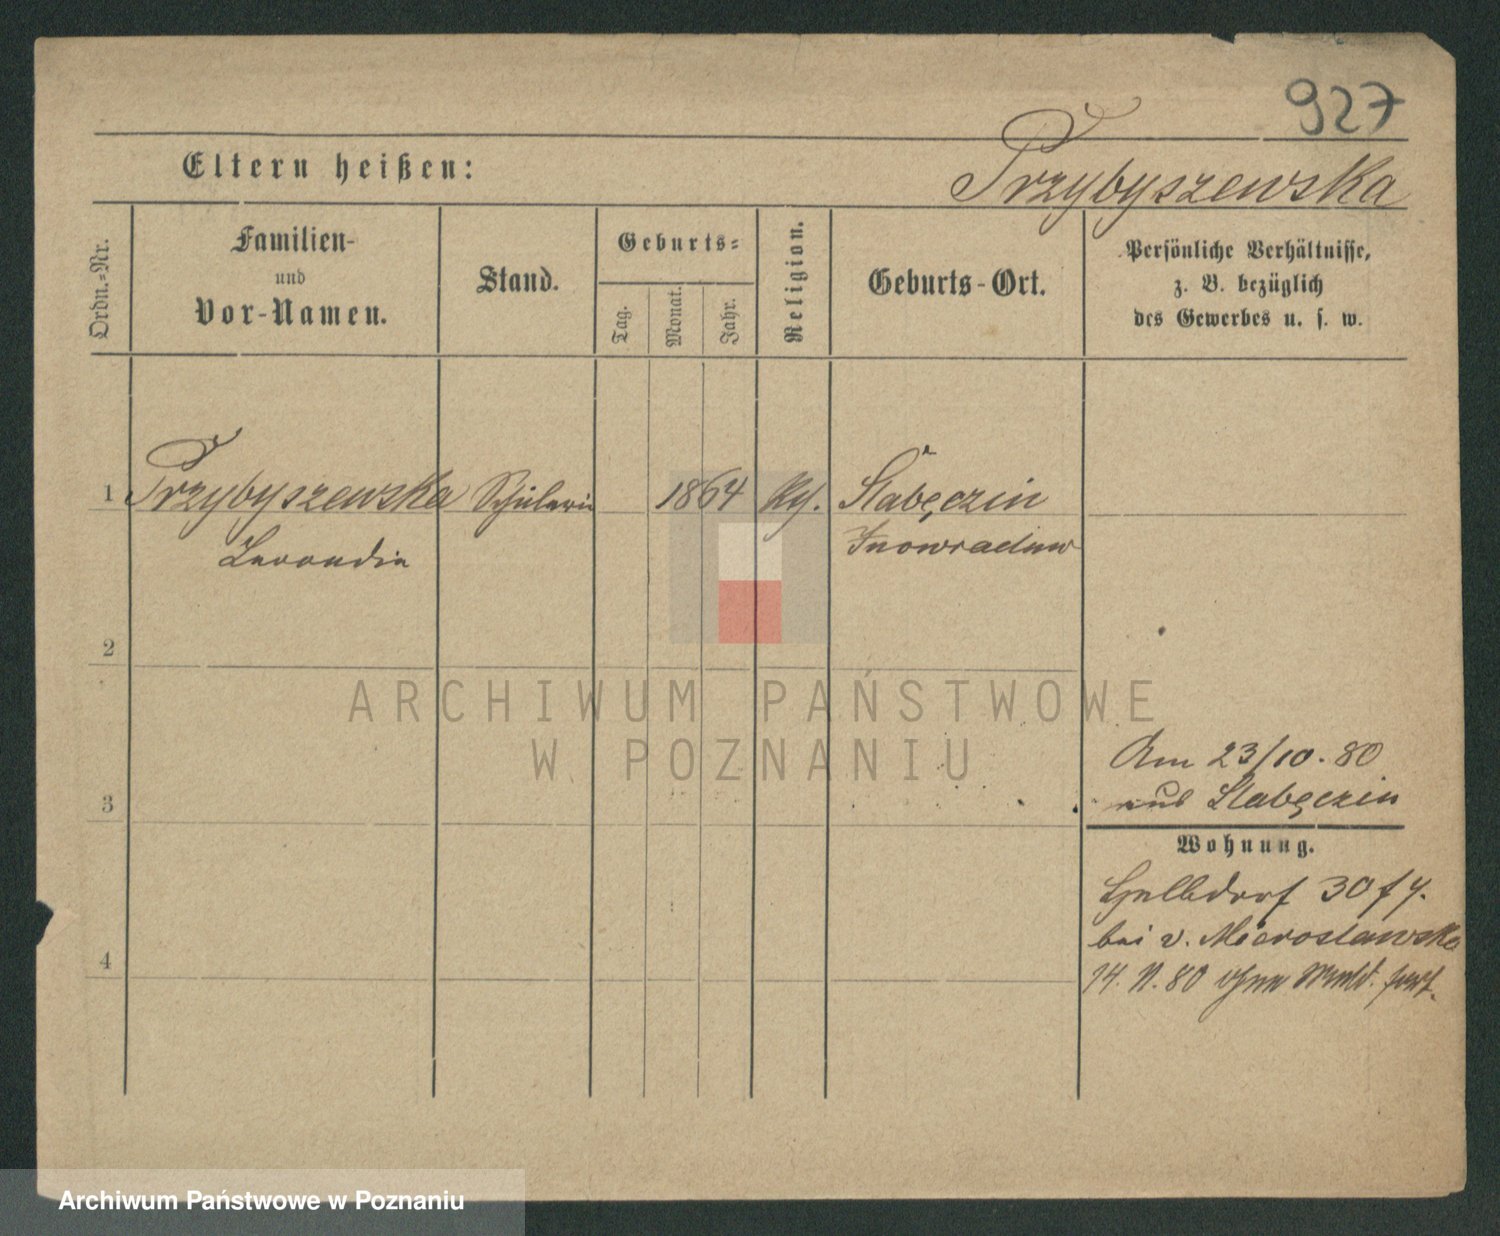 927
Eltern heißen:
Przybyszewska
Ordn.-Nr.
Familien-
und
Vor-Namen.
Stand.
Geburts-
Tag.
Monat.
Jahr.
Religion.
Geburts-Ort.
Persönliche Verhältnisse,
z. B. bezüglich
des Gewerbes u. s. w.
1 Przybyszewska Schülerin 1864 Slabęczin
Inowraclaw
2
ARCHIWUM PAŃSTWOWE
W POZNANIU
Am 23/10. 80
aus Slabęczin
3
Wohnung.
Halbdorf 30
bei v. Mieroslawska
4
14. 11. 80 ohne fort.
Archiwum Państwowe w Poznaniu